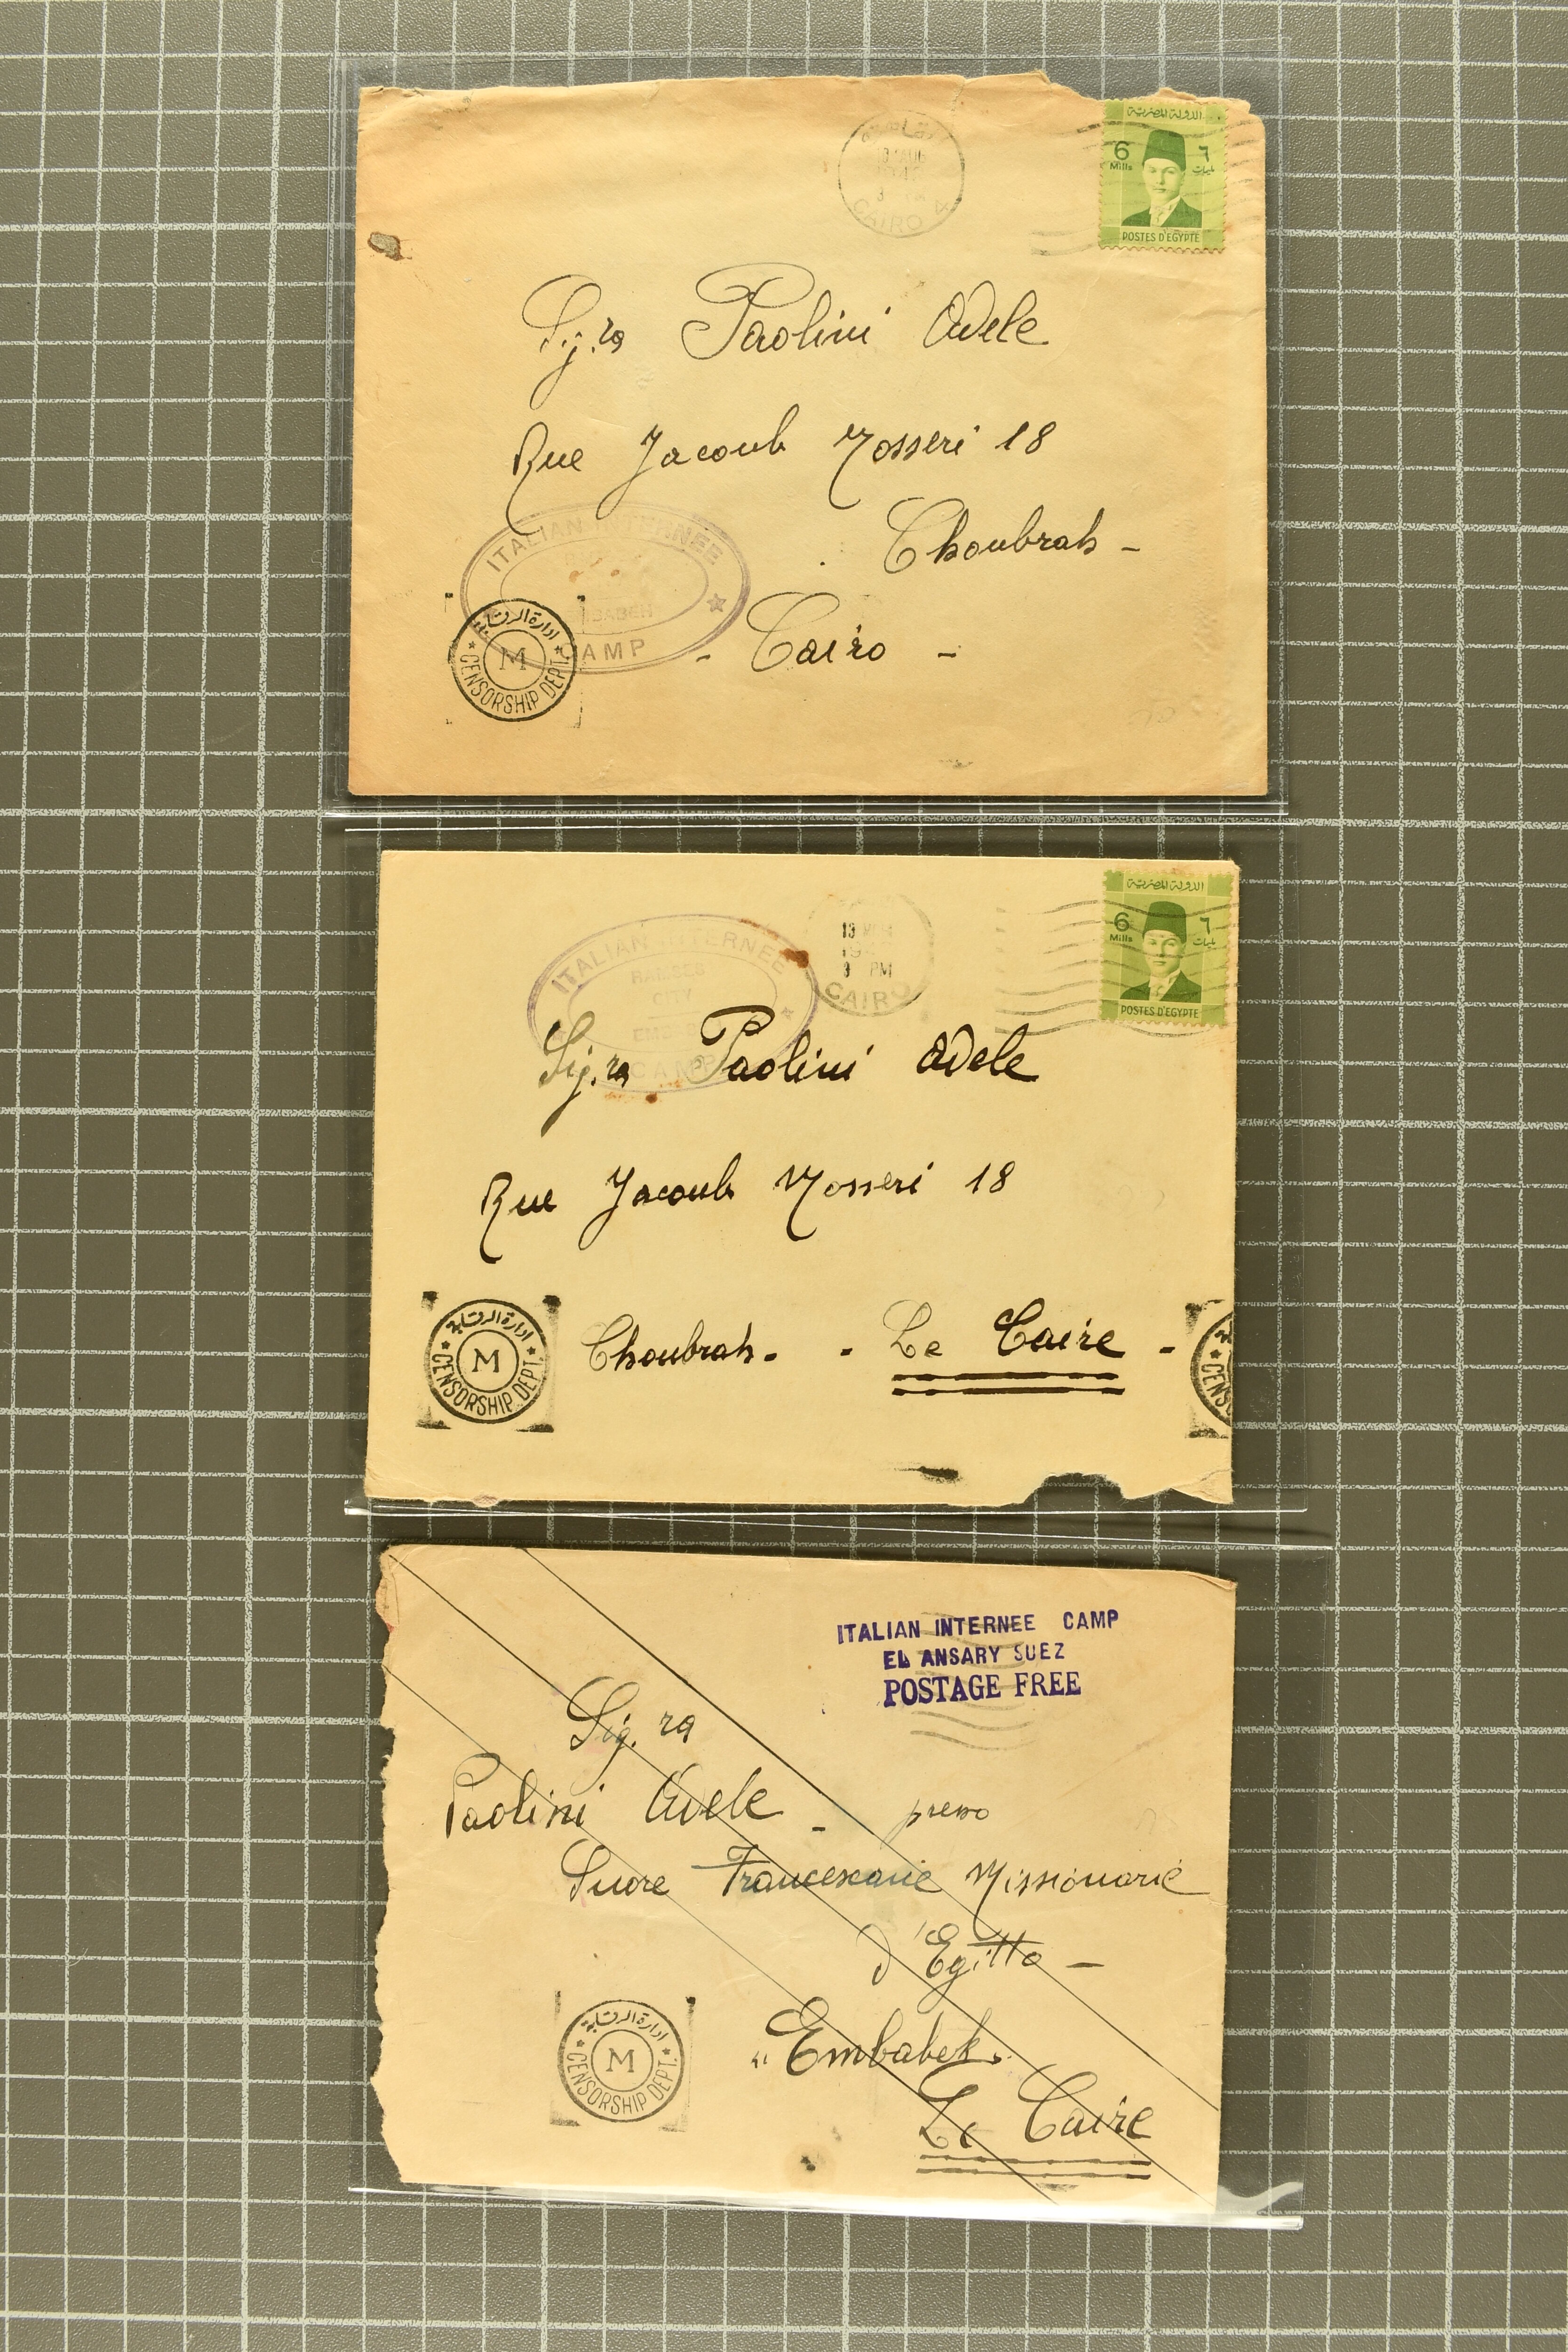 القاهرة
CAIRO
الدولة المصرية
6 ٦
Mills مليمات
POSTES D'EGYPTE
Sig.ra Paolini Adele
Rue Jacoub Mosseri 18
Choubrah -
- Cairo -
ITALIAN INTERNEE
CAMP
ادارة الرقابة
M
CENSORSHIP DEPT.
الدولة المصرية
6 ٦
Mills مليمات
POSTES D'EGYPTE
13
PM
CAIRO
ITALIAN INTERNEE
RAMSES
CITY
CAMP
Sig.ra Paolini Adele
Rue Jacoub Mosseri 18
Choubrah - - Le Caire -
ادارة الرقابة
M
CENSORSHIP DEPT.
CENS
ITALIAN INTERNEE CAMP
EL ANSARY SUEZ
POSTAGE FREE
Sig.ra
Paolini Adele - presso
Suore Francescane Missionarie
d'Egitto -
"Embabeh"
Le Caire
ادارة الرقابة
M
CENSORSHIP DEPT.